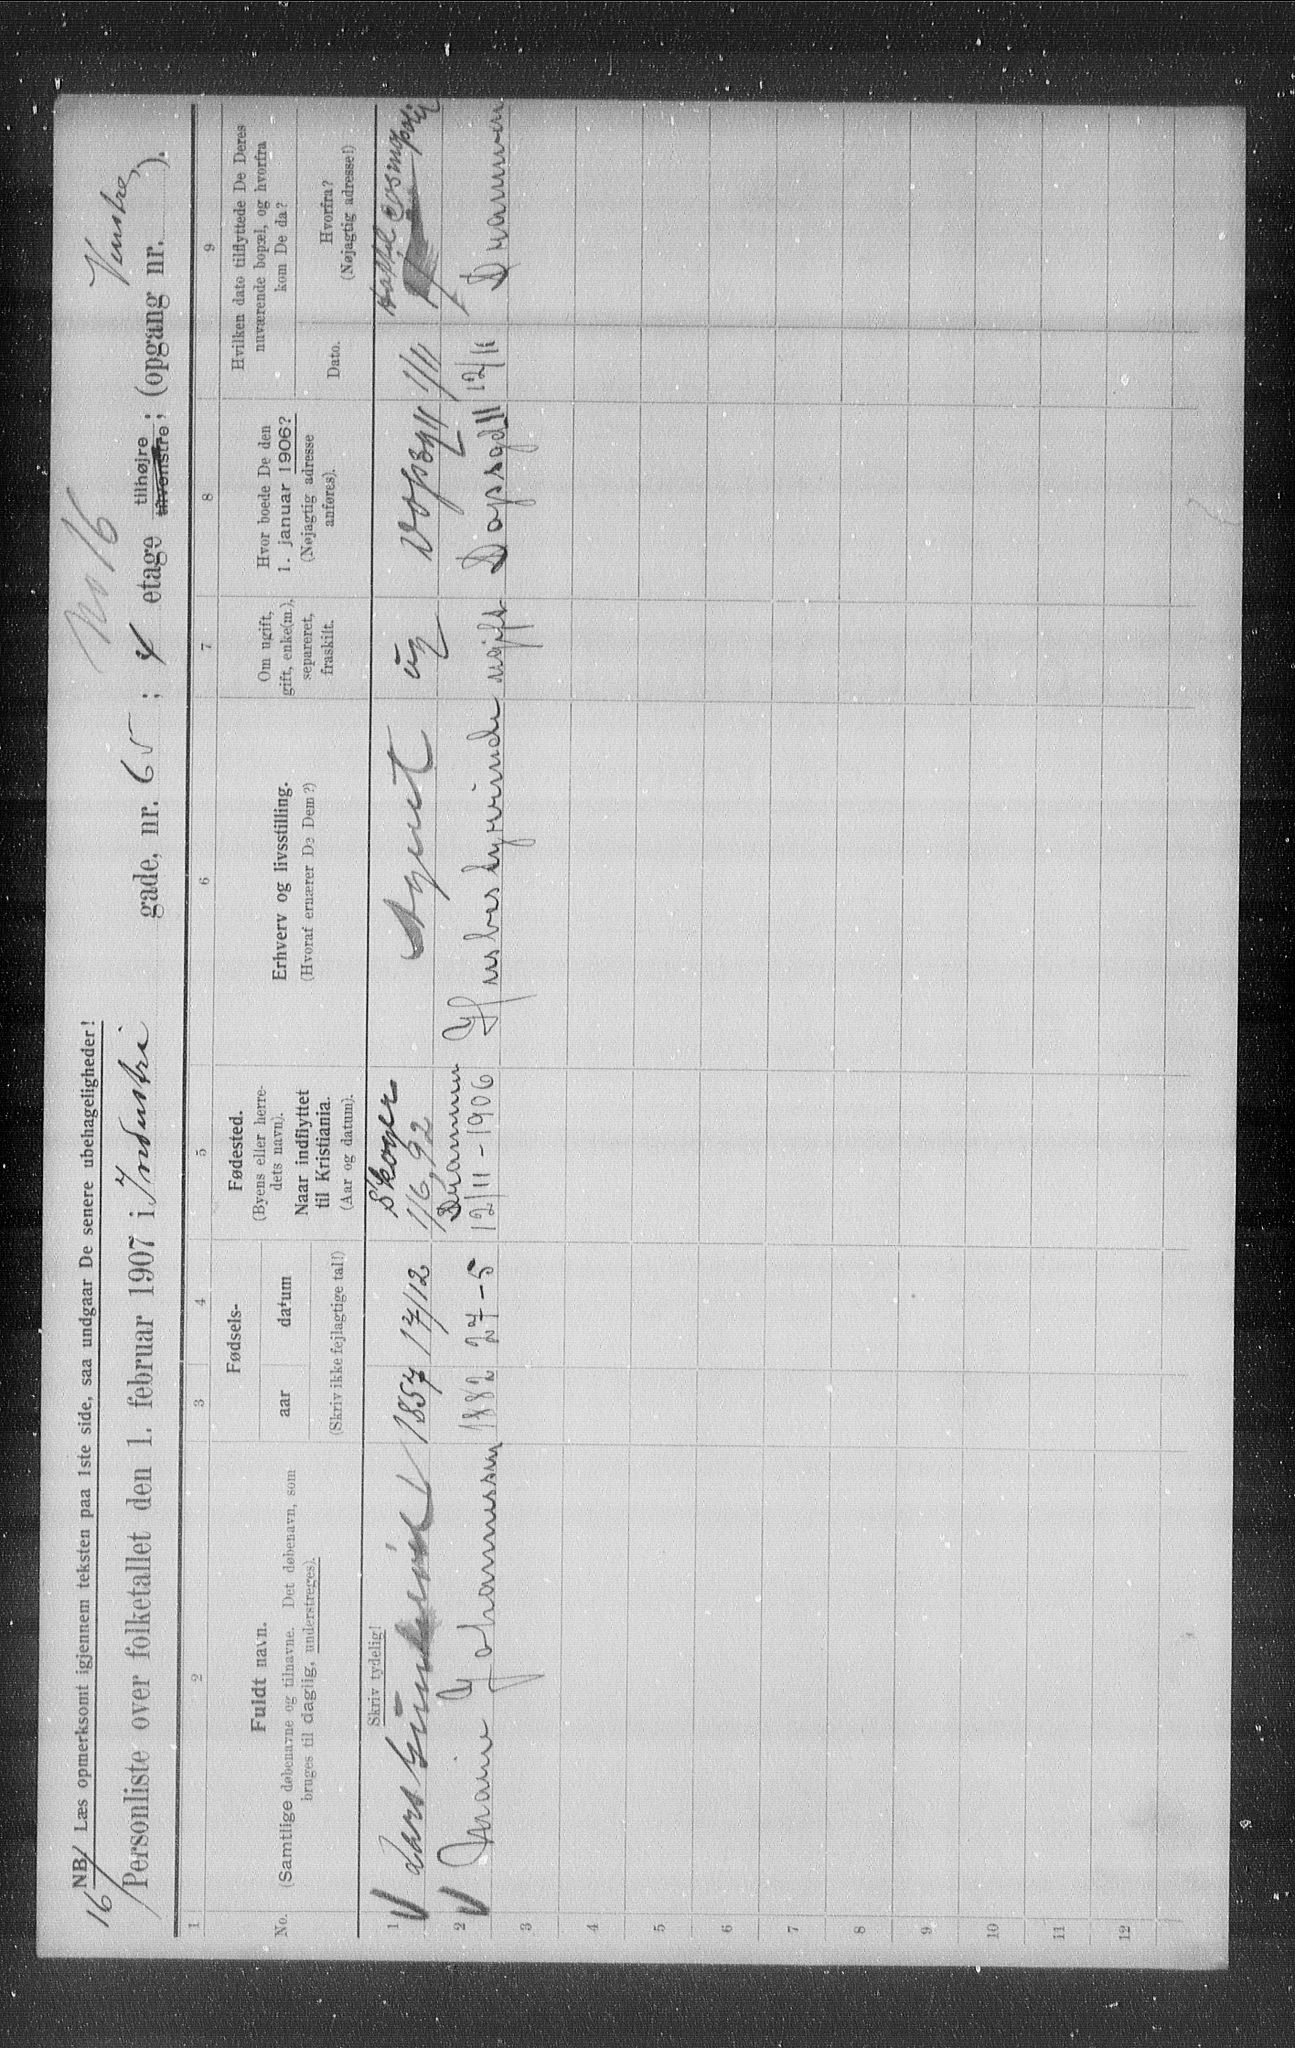 No 16
Venstre
NB. Læs opmerksomt igjennem teksten paa 1ste side, saa undgaar De senere ubehageligheder!
16
Personliste over folketallet den 1. februar 1907 i Industri gade, nr. 65 ; 4 etage tilhøjre tilvenstre ; (opgang nr. ).
1 2 3 4 5 6 7 8 9
No.
Fuldt navn.
(Samtlige døbenavne og tilnavne. Det døbenavn, som
bruges til daglig, understreges).
Skriv tydelig!
Fødsels-
aar datum
(Skriv ikke fejlagtige tal!)
Fødested.
(Byens eller herre-
dets navn).
Naar indflyttet
til Kristiania.
(Aar og datum).
Erhverv og livsstilling.
(Hvoraf ernærer De Dem?)
Om ugift,
gift, enke(m.),
separeret,
fraskilt.
Hvor boede De den
1. januar 1906?
(Nøjagtig adresse
anføres).
Hvilken dato tilflyttede De Deres
nuværende bopæl, og hvorfra
kom De da?
Dato.
Hvorfra?
(Nøjagtig adresse!)
1 Lars 1857 17/12 Skoger 1/6 92 Agent ug 1/11
2 Johannessen 1882 27-5 Drammen 12/11-1906 Husbestyrinde ugift 12/11 Drammen
3
4
5
6
7
8
9
10
11
12